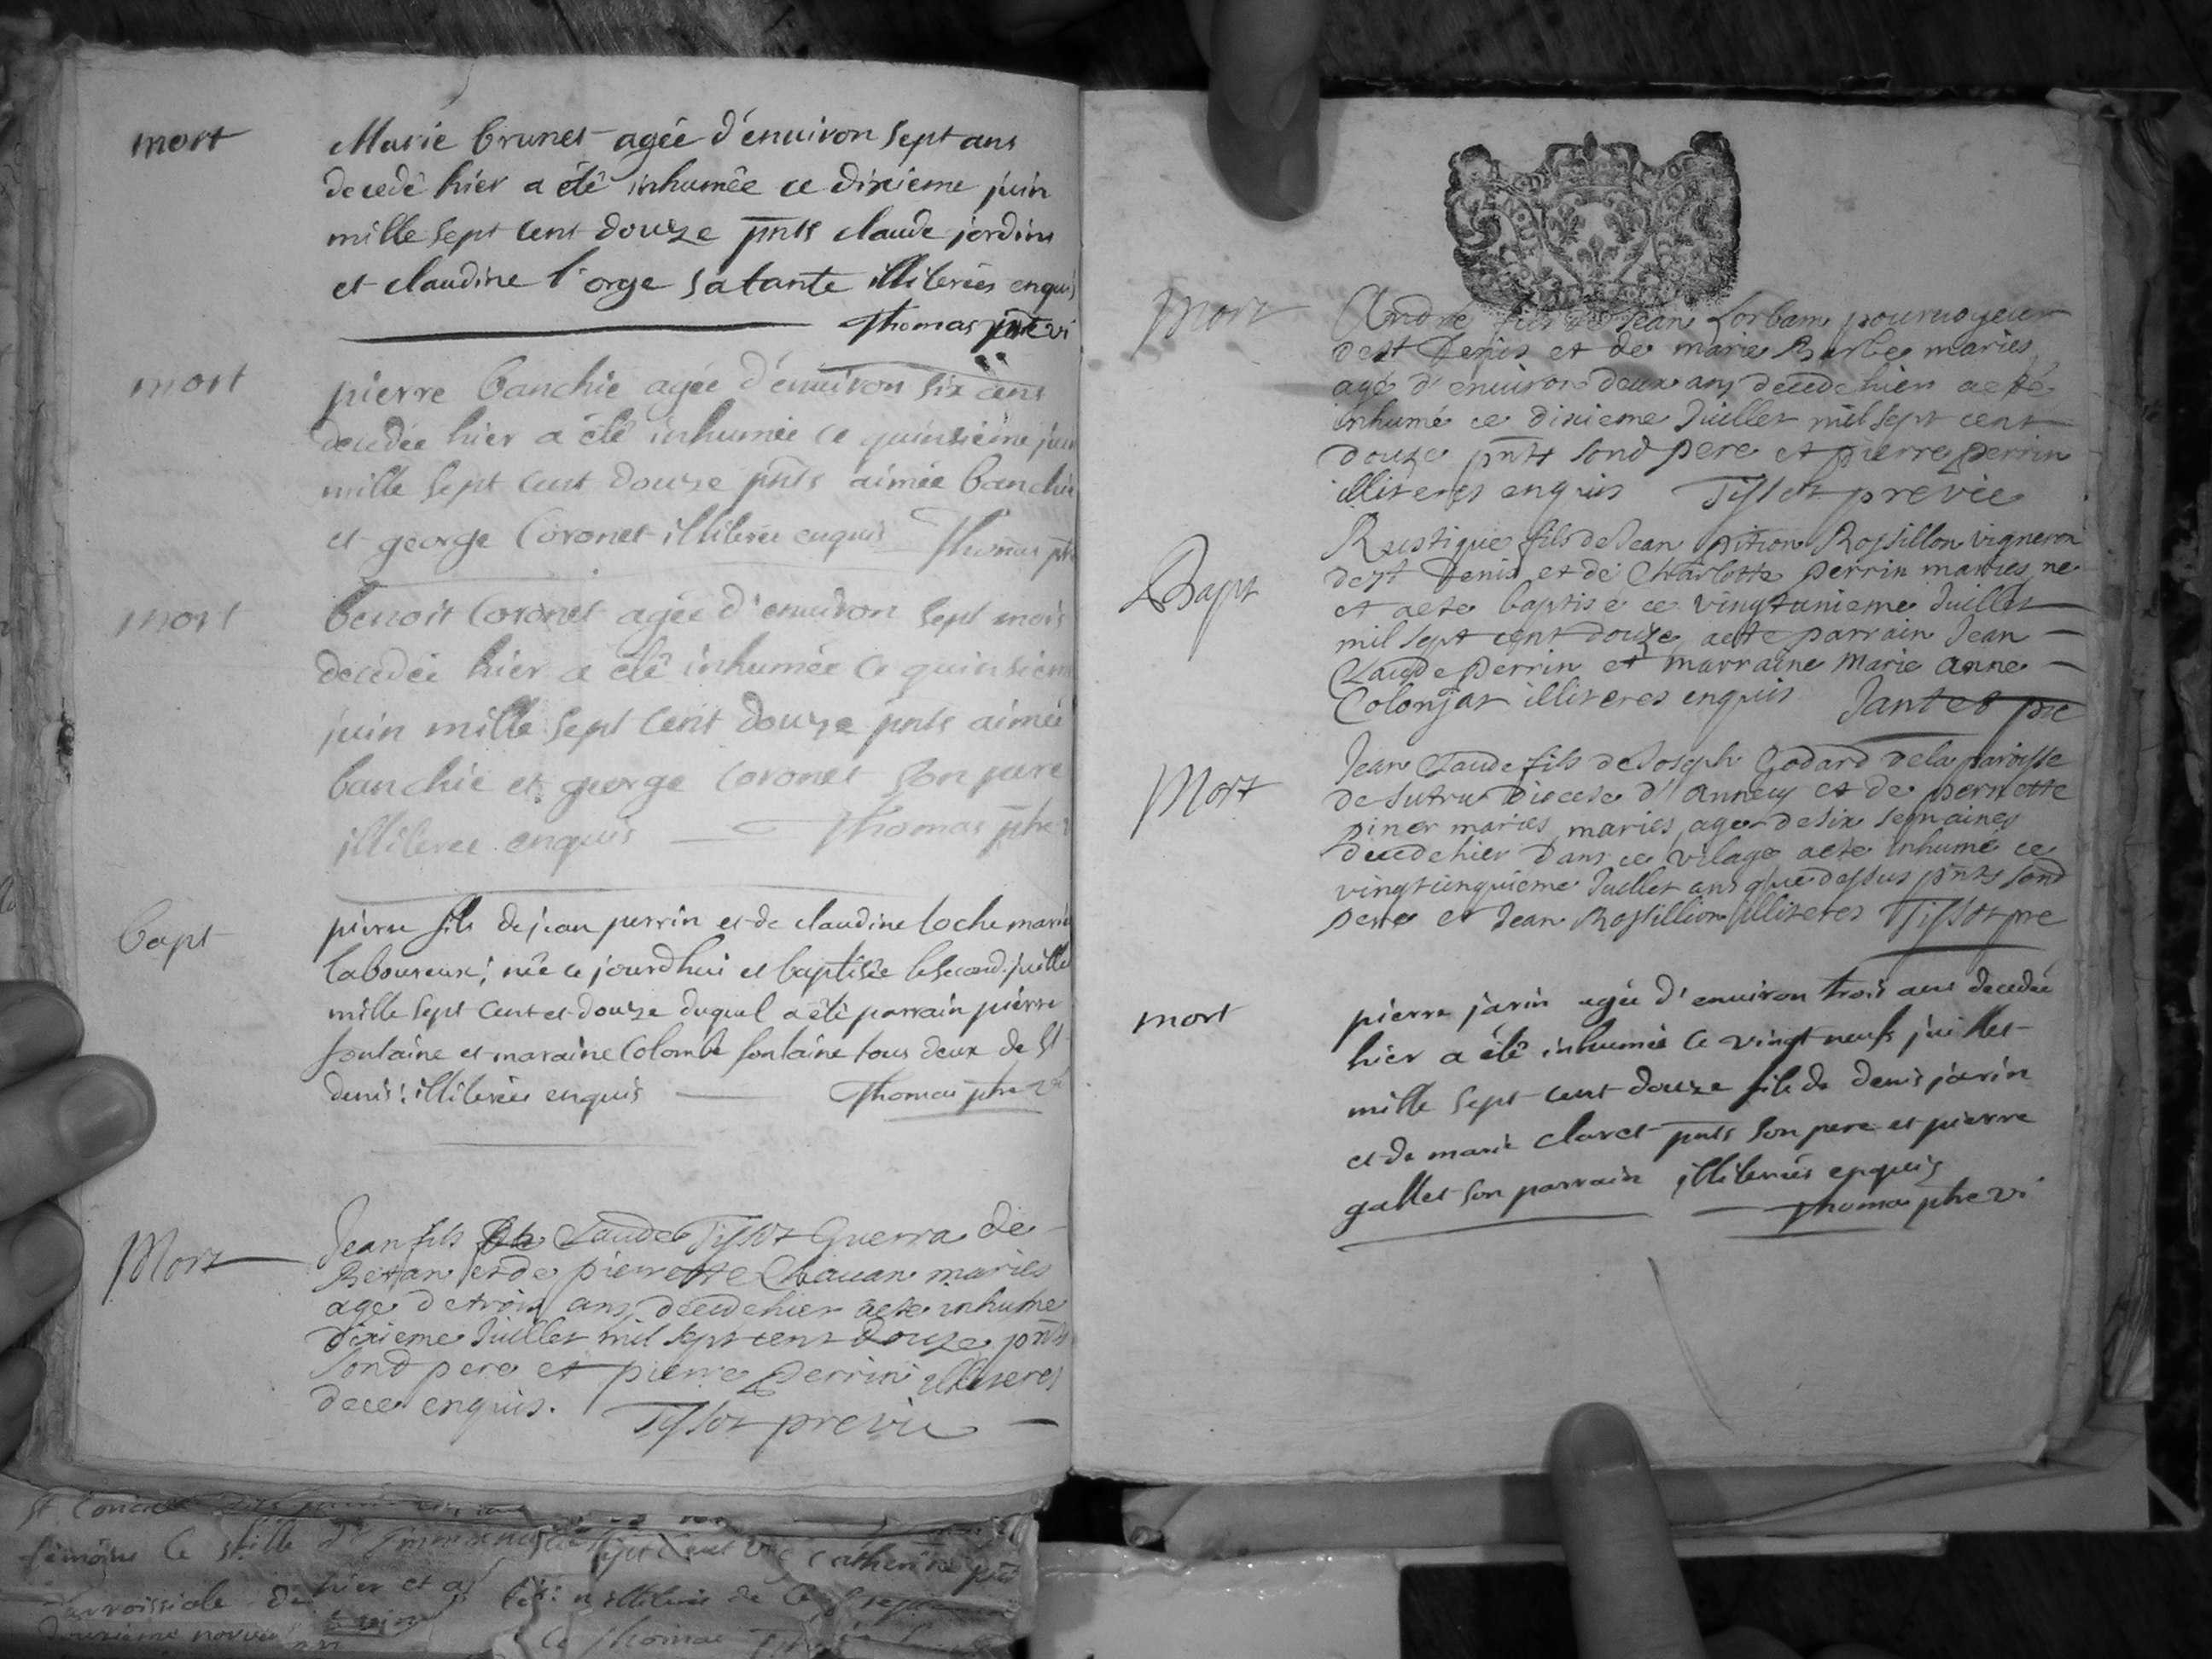 mort
Marie brunet agée d'enuiron sept ans
decedé hier a été inhumée ce dixieme juin
mille sept cent douze pnts claude jordin
et claudine l'orge sa tante illiterées enquis
Thomas ptre vi
mort
pierre banchie agée d'enuiron six ans
decedée hier a été inhumée ce quinsieme juin
mille sept cent douze pnts aimée banchie
et george Coronet illiterée enquis Thomas ptre
mort
benoit Coronet agée d'enuiron sept mois
decedée hier a été inhumée ce quinsieme
juin mille sept cent douze pnts aimée
banchie et george Coronet son pere
illiterée enquis Thomas ptre
bapt
pierre fils de jean perrin et de claudine loche marié
laboureux; née ce jourdhui et baptisée le second juille
mille sept cent et douze duquel a été parrain pierre
fontaine et maraine Colombe fontaine tous deux de st
denis: illiterées enquis Thomas ptre vi
Mort
Jean fils de Claude Tissot Guerra de
Betan et de pierrotte Chauan maries
age de trois ans decedehier aeste inhume
dixieme Juillet mil sept cent douze pnts
sond pere et pierre perrin illiteres
dece enquis. Tissot pre vic
Mort
André fils de Jean Lorbam pouruoyeur
de st Denis et de marie Barbe maries
agé d'enuiron deux ans decedehier aeté
inhumé ce dixieme Juillet mil sept cent
douze pnts sond pere et pierre perrin
illiteres enquis Tissot pre vic
Bapt
Rustique fils de Jean pition Rossillon vigneron
de st Denis et de Charlotte perrin maries ne
et aete baptise ce vingtunieme Juillet
mil sept cent douze aeté parrain Jean
Claude perrin et marraine Marie Anne
Colonjat illiteres enquis Jantet pre
Mort
Jean Claude fils de Joseph Godard dela paroisse
de Diocese d'Annecy et de pernette
piner maries maries age de six semaines
decedehier dans ce vilage aeté inhumé ce
vingtcinquieme Juillet an que dessus pnts sond
pere et Jean Rossillion illiteres Tissot pre
mort
pierre jarin agée d'enuiron trois ans decedée
hier a été inhumée ce vingt neuf juillet
mille sept cent douze fils de denis jarin
et de marie claret pnts son pere et pierre
gallet son parrain illiterées enquis
Thomas ptre vi